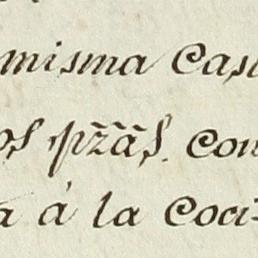 misma cas
os pz̃ãs. con
a á la coci-